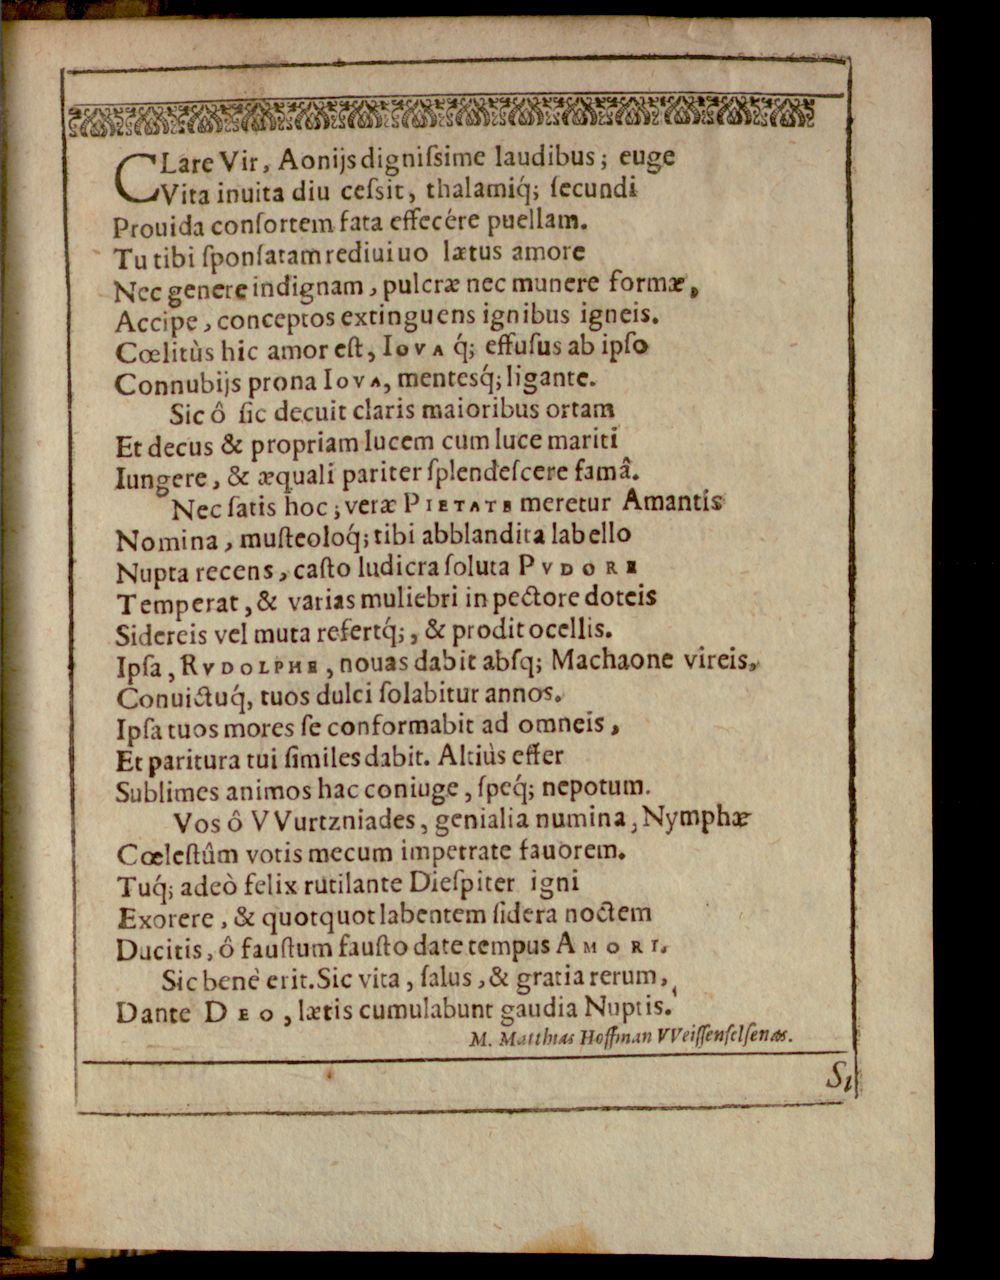 CLare Vir, Aonijs digniſsime laudibus; euge
Vita inuita diu ceſsit, thalamiq́; ſecundi
Prouida conſortem fata effecére puellam.
Tu tibi ſponſatam rediuiuo lætus amore
Nec genere indignam, pulcræ nec munere formæ,
Accipe, conceptos extinguens ignibus igneis.
Cœlitùs hic amor eſt, IOVAq́; effuſus ab ipſo
Connubijs prona IOVA, mentesq́; ligante.
Sic ô ſic decuit claris maioribus ortam
Et decus & propriam lucem cum luce mariti
Iungere, & æquali pariter ſplendeſcere famâ.
Nec ſatis hoc; veræ PIETATE meretur Amantis
Nomina, muſteoloq́; tibi abblandita labello
Nupta recens, caſto ludicra ſoluta PVDORE
Temperat, & varias muliebri in pectore doteis
Sidereis vel muta refertq́;, & prodit ocellis.
Ipſa, RVDOLPHE, nouas dabit abſq; Machaone vireis,
Conuictuq́, tuos dulci ſolabitur annos.
Ipſa tuos mores ſe conformabit ad omneis,
Et paritura tui ſimiles dabit. Altiùs effer
Sublimes animos hac coniuge, ſpeq́; nepotum.
Vos ô VVurtzniades, genialia numina, Nymphæ
Cœleſtûm votis mecum impetrate fauorem.
Tuq́; adeò felix rutilante Dieſpiter igni
Exorere, & quotquot labentem ſidera noctem
Ducitis, ô fauſtum fauſto date tempus AMORI.
Sic benè erit. Sic vita, ſalus, & gratia rerum,
Dante DEO, lætis cumulabunt gaudia Nuptis.
M. Matthias Hoffman VVeiſſenfelſenas.
Si